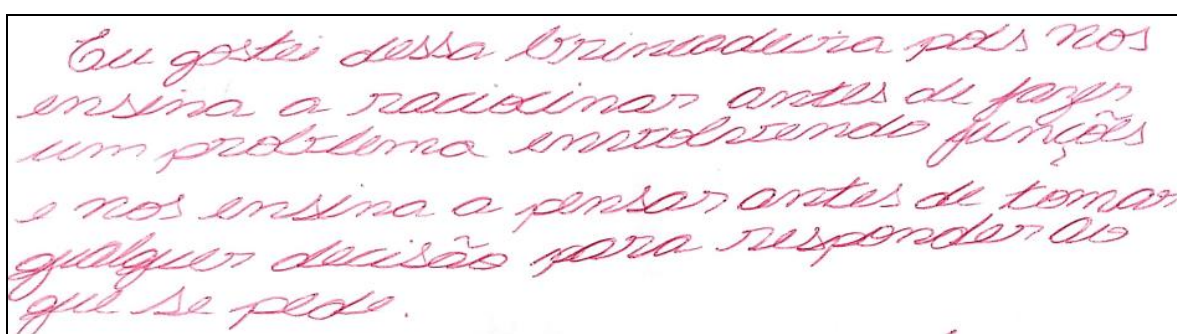 Eu gostei dessa brincadeira pois nos
ensina a raciocinar antes de fazer
um problema envolvendo funções
e nos ensina a pensar antes de tomar
qualquer decisão para responder ao
que se pede.